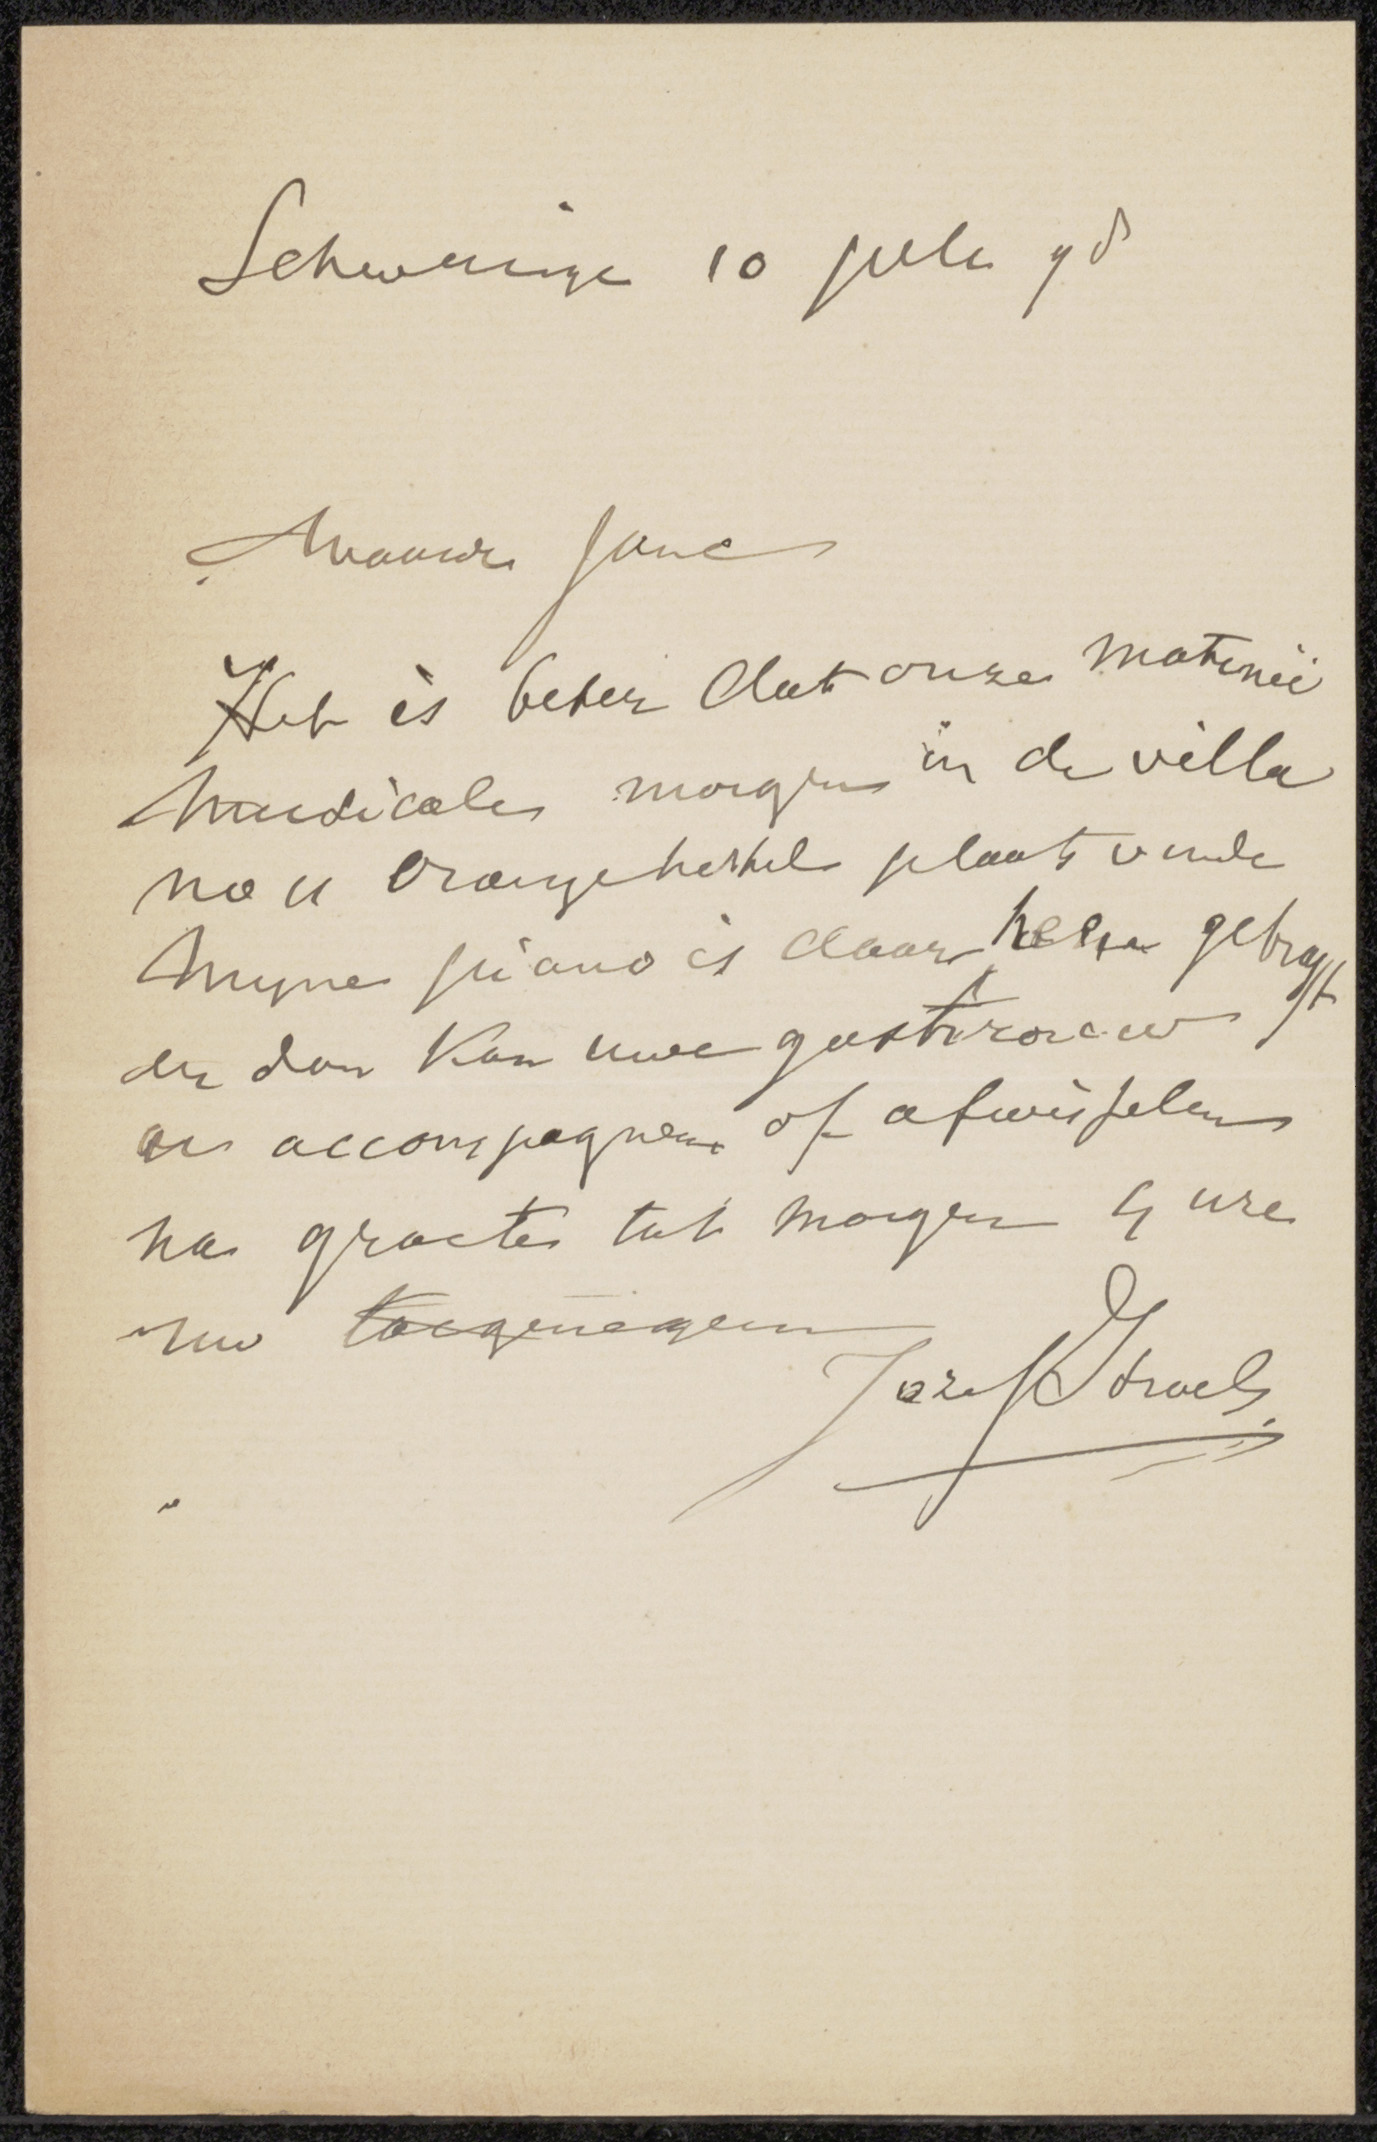 Scheveninge 10 july 98
Waarde Jane
Het is beter dat onze matinée
Musicale morgen in de villa
no 11 Oranjehotel plaats vinde
Myne piano is daar heen gebragt
en dan kan uwe gastvrouw
ons accompagneren of afwisselen
na groete tot morgen 4 ure
uw toegenegen
Jozef Israels